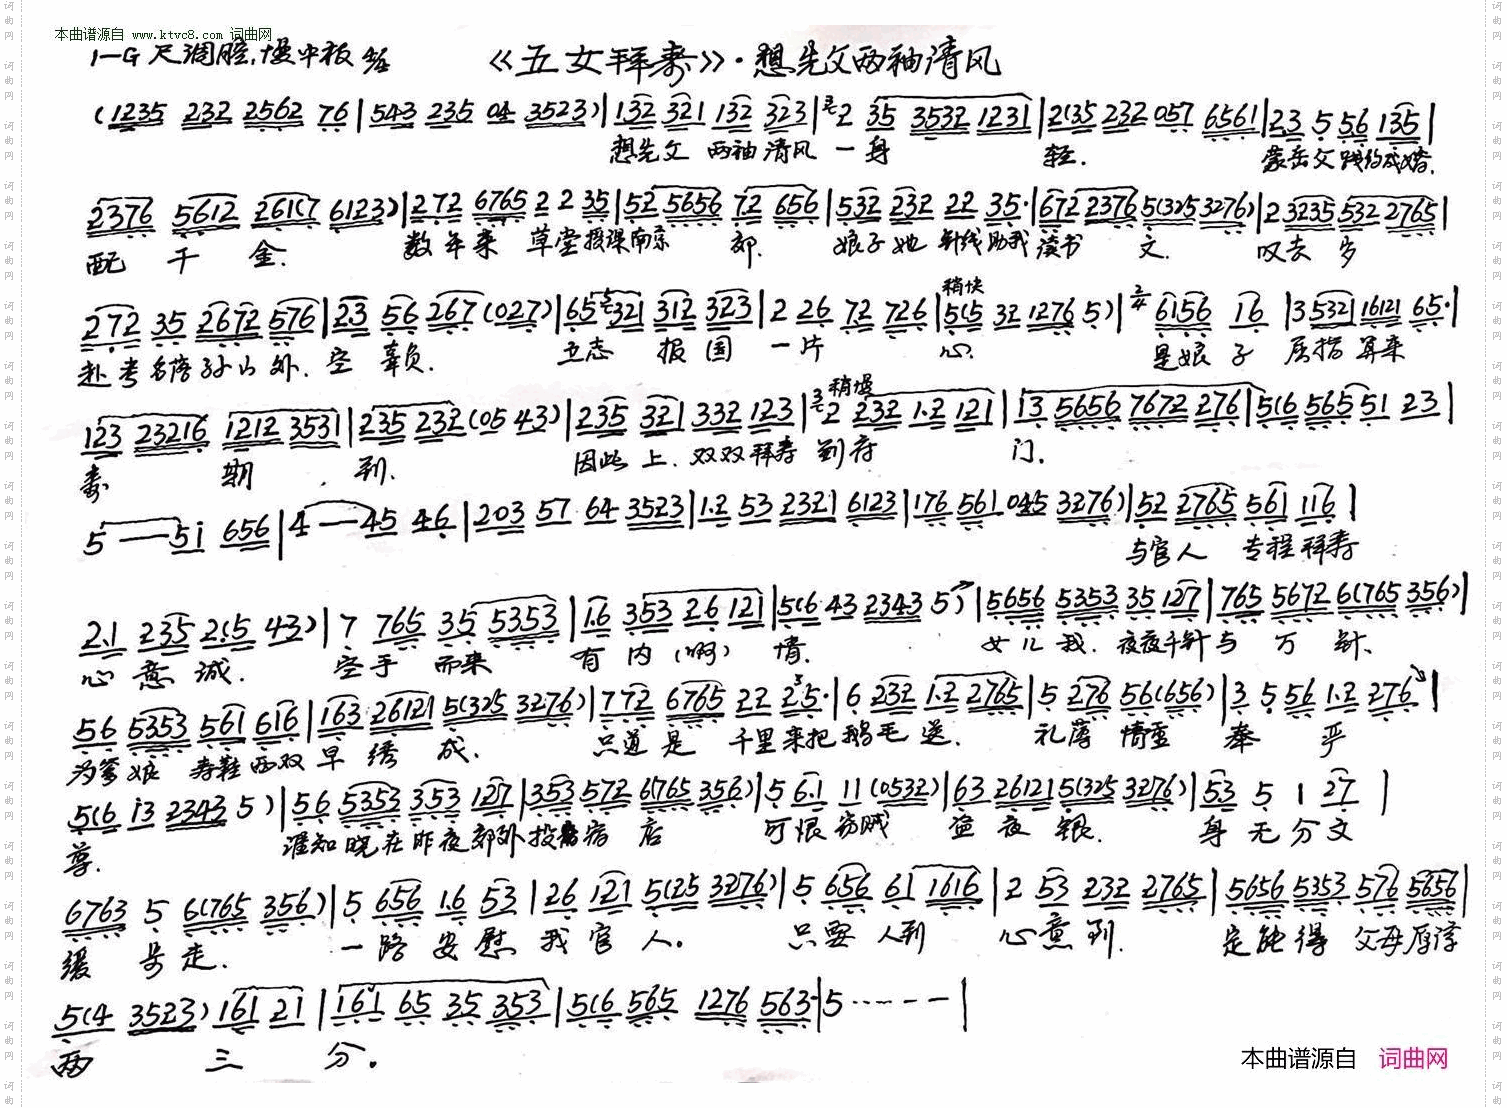 本曲谱源自 www.ktvc8.com 词曲网
1=G 尺调腔.慢中板
《五女拜寿》·想先父两袖清风
(1235 232 2562 76 | 543 235 04 3523) | 132 321 132 323 | 2 35 3532 1231 | 2(35 232 057 6561 | 2.3 5 56 135 |
想先父 两袖清风 一身 轻. 蒙岳父践约成婚.
2376 5612 261(7 6123) | 272 6765 2 2 35 | 52 5656 72 656 | 532 232 22 35· | 672 2376 5(325 3276) | 2 3235 532 2765 |
配 千 金. 数年来 草堂授课南京 郊. 娘子她 针线助我读书 文. 叹去 岁
272 35 2672 576 | 23 56 267 (027) | 65 321 312 323 | 2 26 72 726 | 稍快 5(5 32 1276 5) | 2/4 6156 16 | 3 5321 16121 65· |
赴考名落孙山外. 空 辜负. 立志 报国 一片 心. 是娘子 屈指算来
123 23216 1212 3531 | 235 232 (05 43) | 235 321 332 123 | 稍慢 2 232 1·2 121 | 13 5656 7672 276 | 5(6 565 51 23 |
寿 期 . 到. 因此上. 双双拜寿 到府 门.
5 — 51 656 | 4 — 45 46 | 203 57 64 3523 | 1·2 53 2321 6123 | 176 561 045 3276) | 52 2765 561 116 |
与官人 专程拜寿
2.1 235 2(.5 43) | 7 765 35 5353 | 1.6 353 26 121 | 5(6 43 2343 5) | 5656 5353 35 127 | 765 5672 6(765 356) |
心意诚. 空手 而来 有内(啊) 情. 女儿我. 夜夜千针与 万 针.
56 5353 561 616 | 163 26121 5(325 3276) | 772 6765 22 25· | 6 232 1·2 2765 | 5 276 56(656) | 3 5 56 1·2 276 |
为爹娘 寿鞋两双早 绣 成. 只道是 千里来把鹅毛 送. 礼薄情重 奉 严
5(6 13 2343 5) | 56 5353 353 127 | 353 572 6(765 356) | 5 6·1 11 (0532) | 63 26121 5(325 3276) | 53 5 1 27 |
尊. 谁知晓 在昨夜郊外投宿 店 可恨窃贼 盗夜 银. 身无分文
6763 5 6(765 356) | 5 656 1·6 53 | 26 121 5(25 3276) | 5 656 61 1616 | 2 53 232 2765 | 5656 5353 576 5656 |
缓 步 走. 一路 安慰 我官 人. 只要人到 心意到. 定能得 父母厚谅
5(4 3523) 161 21 | 161 65 35 353 | 5(6 565 1276 563· | 5 ······ — |
两 三 分.
本曲谱源自 词曲网